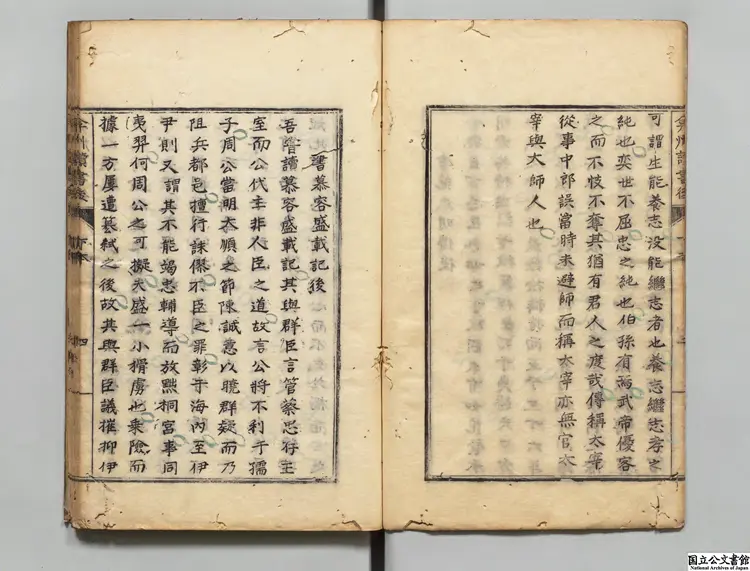 可謂生能養志沒能繼志者也養志繼志孝之
純也奕世不屈忠之純也伯孫有焉武帝優容
之而不忮不奪其猶有君人之度哉傳稱太宰
從事中郎誤當時未避師而稱太宰亦無官太
宰與大師人也
書慕容盛載記後
吾嘗讀慕容盛載記其與群臣言管蔡忠存王
室而公代主非人臣之道故言公將不利于孺
子周公當明大順之節陳誠意以曉群疑而乃
阻兵都邑擅行誅僇不臣之罪彰于海內至伊
尹則又謂其不能竭忠輔導而放黜桐宮事同
夷羿何周公之可擬夫盛一小猾虜也乘險而
據一方屢遭篡弒之後故其與群臣議摧抑伊
弇州讀書後
國立公文書館
National Archives of Japan